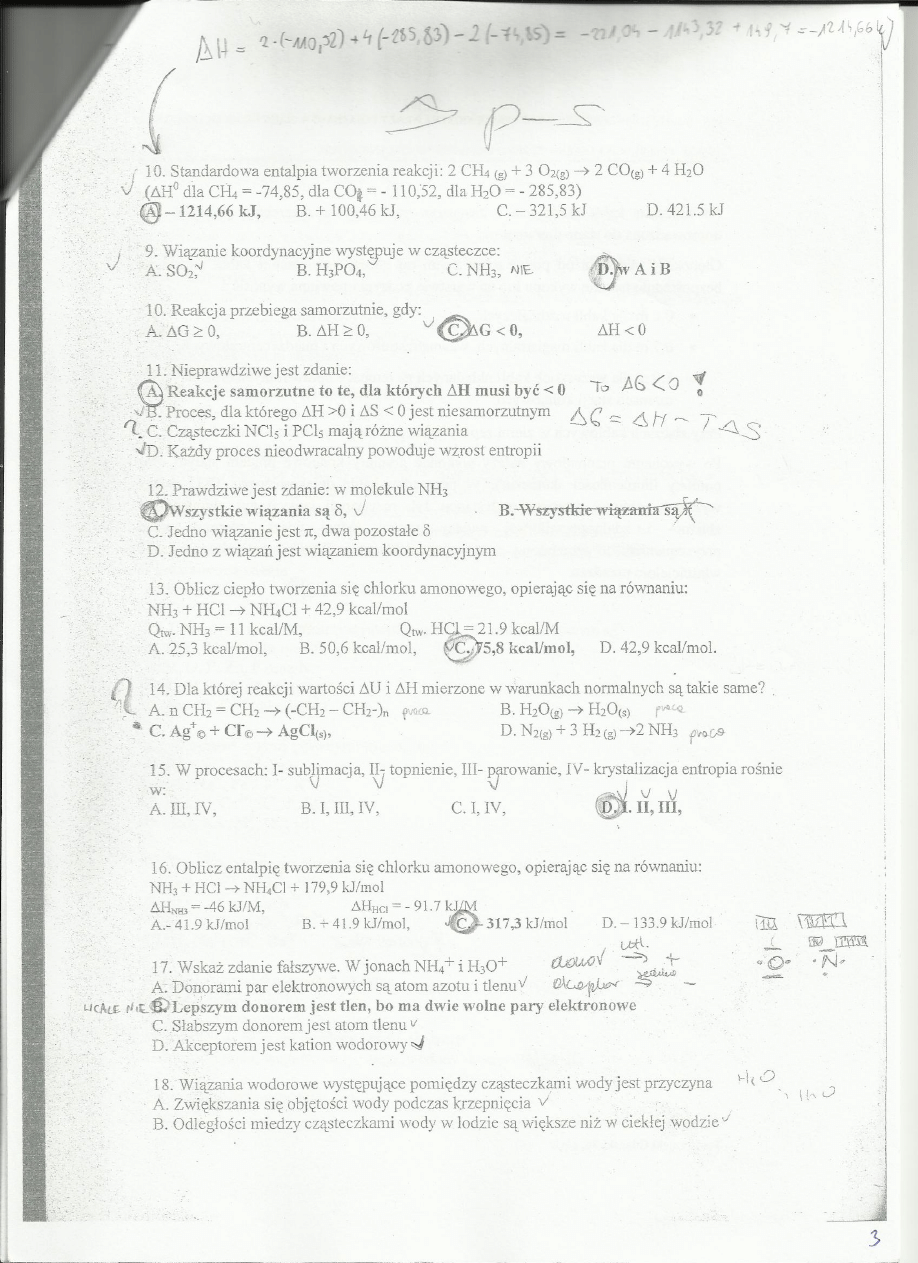 ΔH = 2·(-110,52) + 4(-285,83) - 2(-74,85) = -221,04 - 1143,32 + 149,7 = -1214,66 kJ
p—s
10. Standardowa entalpia tworzenia reakcji: 2 CH4 (g) + 3 O2(g) → 2 CO(g) + 4 H2O
(ΔH⁰ dla CH4 = -74,85, dla CO = - 110,52, dla H2O = - 285,83)
A. – 1214,66 kJ, B. + 100,46 kJ, C. – 321,5 kJ D. 421.5 kJ
9. Wiązanie koordynacyjne występuje w cząsteczce:
A. SO2, B. H3PO4, C. NH3, NIE D. w A i B
10. Reakcja przebiega samorzutnie, gdy:
A. ΔG ≥ 0, B. ΔH ≥ 0, C. ΔG < 0, ΔH < 0
11. Nieprawdziwe jest zdanie:
A. Reakcje samorzutne to te, dla których ΔH musi być < 0 To ΔG<0 !
B. Proces, dla którego ΔH >0 i ΔS < 0 jest niesamorzutnym ΔG = ΔH - TΔS
?. C. Cząsteczki NCl5 i PCl5 mają różne wiązania
D. Każdy proces nieodwracalny powoduje wzrost entropii
12. Prawdziwe jest zdanie: w molekule NH3
A. Wszystkie wiązania są δ, B. Wszystkie wiązania są
C. Jedno wiązanie jest π, dwa pozostałe δ
D. Jedno z wiązań jest wiązaniem koordynacyjnym
13. Oblicz ciepło tworzenia się chlorku amonowego, opierając się na równaniu:
NH3 + HCl → NH4Cl + 42,9 kcal/mol
Qtw. NH3 = 11 kcal/M, Qtw. HCl = 21.9 kcal/M
A. 25,3 kcal/mol, B. 50,6 kcal/mol, C. 75,8 kcal/mol, D. 42,9 kcal/mol.
? 14. Dla której reakcji wartości ΔU i ΔH mierzone w warunkach normalnych są takie same?
A. n CH2 = CH2 → (-CH2 – CH2-)n praca B. H2O(g) → H2O(s) praca
* C. Ag⁺© + Cl⁻© → AgCl(s), D. N2(g) + 3 H2 (g) →2 NH3 praca
15. W procesach: I- sublimacja, II- topnienie, III- parowanie, IV- krystalizacja entropia rośnie
w:
A. III, IV, B. I, III, IV, C. I, IV, D. I. II, III,
16. Oblicz entalpię tworzenia się chlorku amonowego, opierając się na równaniu:
NH3 + HCl → NH4Cl + 179,9 kJ/mol
ΔHNH3 = -46 kJ/M, ΔHHCl = - 91.7 kJ/M
A.- 41.9 kJ/mol B. + 41.9 kJ/mol, C. - 317,3 kJ/mol D. – 133.9 kJ/mol
17. Wskaż zdanie fałszywe. W jonach NH4⁺ i H3O⁺ donor → +
A. Donorami par elektronowych są atom azotu i tlenu akceptor → -
WCALE NIE B. Lepszym donorem jest tlen, bo ma dwie wolne pary elektronowe
C. Słabszym donorem jest atom tlenu
D. Akceptorem jest kation wodorowy
O N
18. Wiązania wodorowe występujące pomiędzy cząsteczkami wody jest przyczyna
A. Zwiększania się objętości wody podczas krzepnięcia
B. Odległości miedzy cząsteczkami wody w lodzie są większe niż w ciekłej wodzie
3